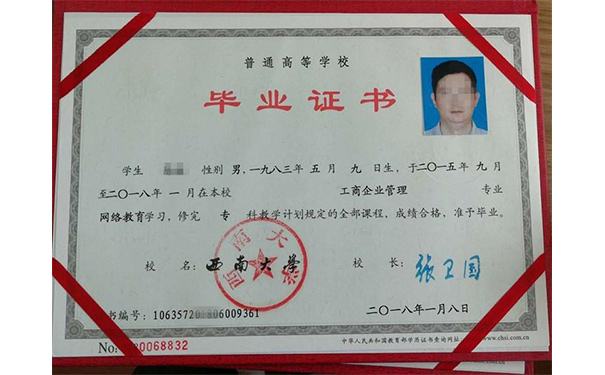 普通高等学校
毕业证书
学生 性别 男,一九八三年 五月 九日生,于二〇一五年 九月
至二〇一八年 一月在本校 工商企业管理 专业
网络教育学习,修完 专 科教学计划规定的全部课程,成绩合格,准予毕业。
校 名:西南大学 校 长:张卫国
西南大学
书编号:10635720 06009361 二〇一八年一月八日
No: 0068832 中华人民共和国教育部学历证书查询网址 www.chsi.com.cn